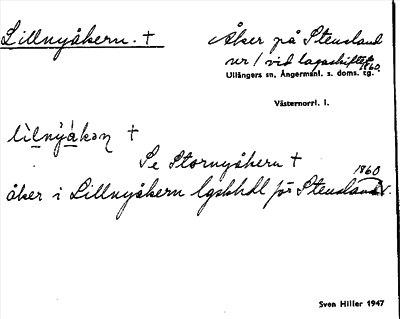 Lillnyåkern. †
Åker på Stensland
nr 1 vid lagaskiftet
1860.
Ullångers sn, Ångermanl. s. doms. tg.
Västernorrl. l.
lìlnỳåkan †
Se Stornyåkern †
1860
åker i Lillnyåkern lgskhdl för Stensland
Sven Hiller 1947